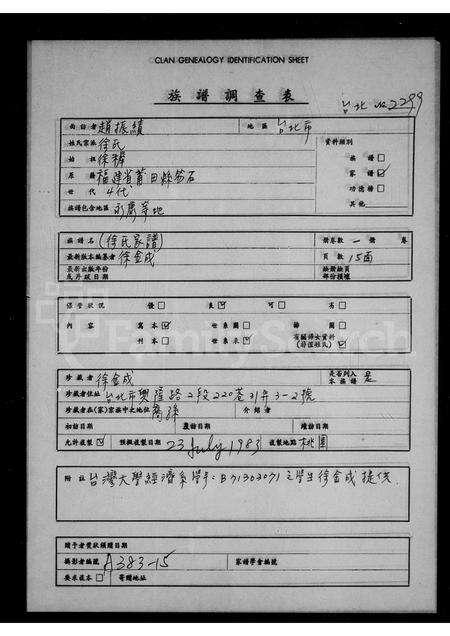 CLAN GENEALOGY IDENTIFICATION SHEET
族譜調查表
台北 no 2299
面訪者 趙振績 地區 台北市
姓氏宗派 徐氏 資料類別
始祖 徐
族譜
原籍 福建省莆田縣
家譜
世代 4代
功德榜
族譜包含地區 永 等地 其他
族譜名 (徐氏家譜) 冊卷數 一 冊 卷
最新版本編纂者 徐金成 頁數 15面
最新出版年份 缺冊缺頁
或升版日期 部份損壞
保管狀況 優 良 可 劣
內容 寫本 世系圖 譜圖
有關婦女資料
刊本 世系表 (非僅姓氏)
FamilySearch
珍藏者 徐金成 是否列入本族譜 是
珍藏者住址 台北市興隆路2段220巷31弄3-2號
珍藏者在(家)宗族中之地位 裔孫 介紹者
初訪日期 覆訪日期 續訪日期
允許複製 預擬複製日期 23 July 1983 複製地點 桃園
附註 台灣大學經濟系學于:B71303071之學生徐金成提供.
贈予者獎狀頒贈日期
攝影者編號 A383-15 家譜學會編號
要求舊本 寄贈地址